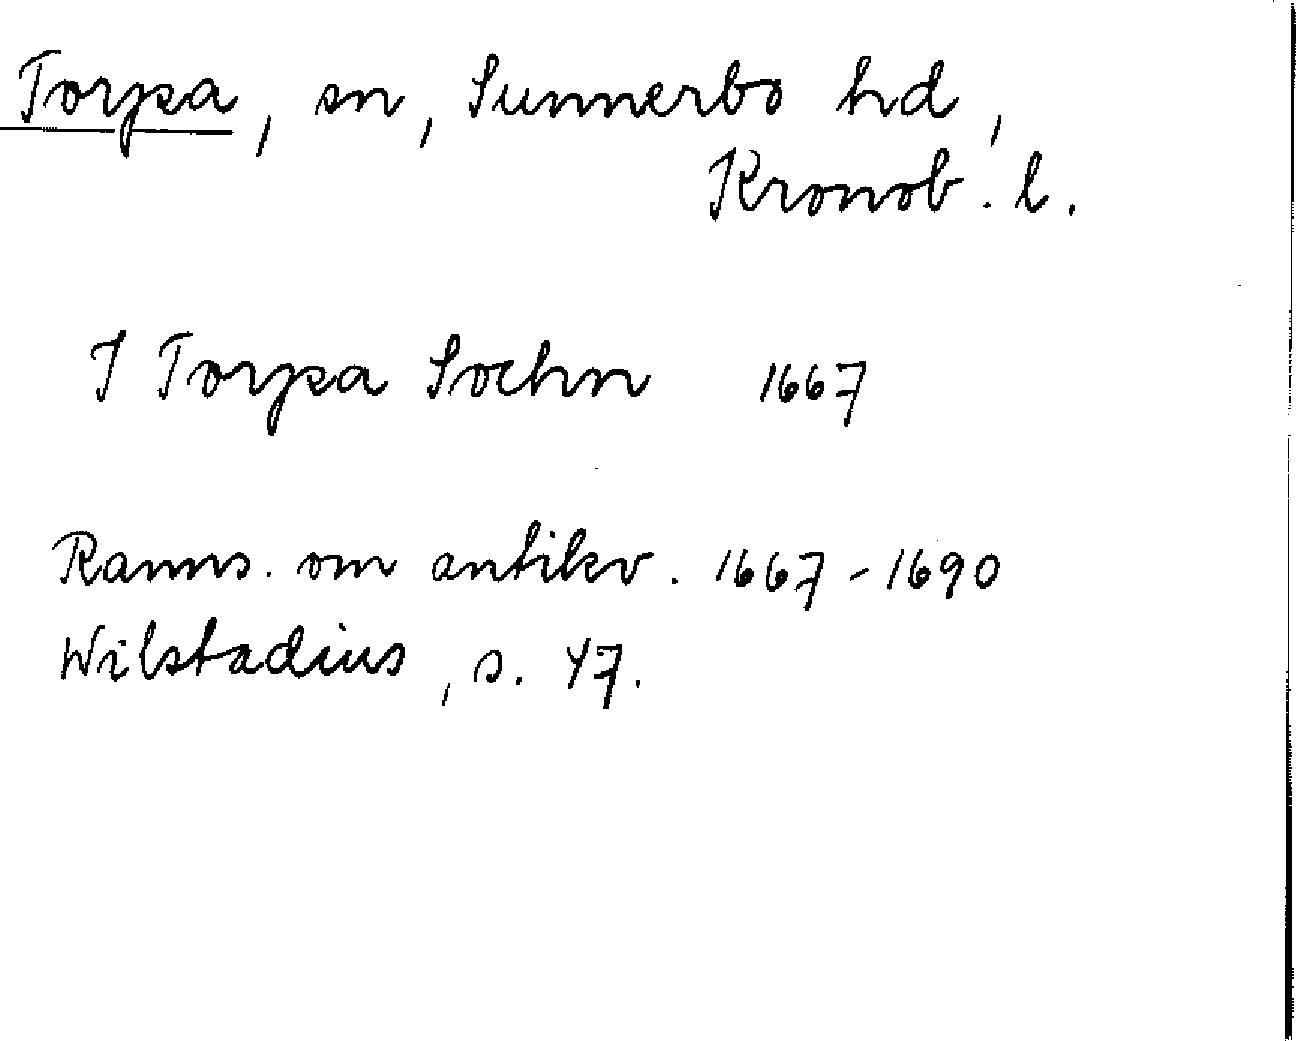 Torpa, sn, Sunnerbo hd,
Kronob. l.
I Torpa Sochn 1667
Ranns. om antikv. 1667-1690
Wilstadius, s. 47.